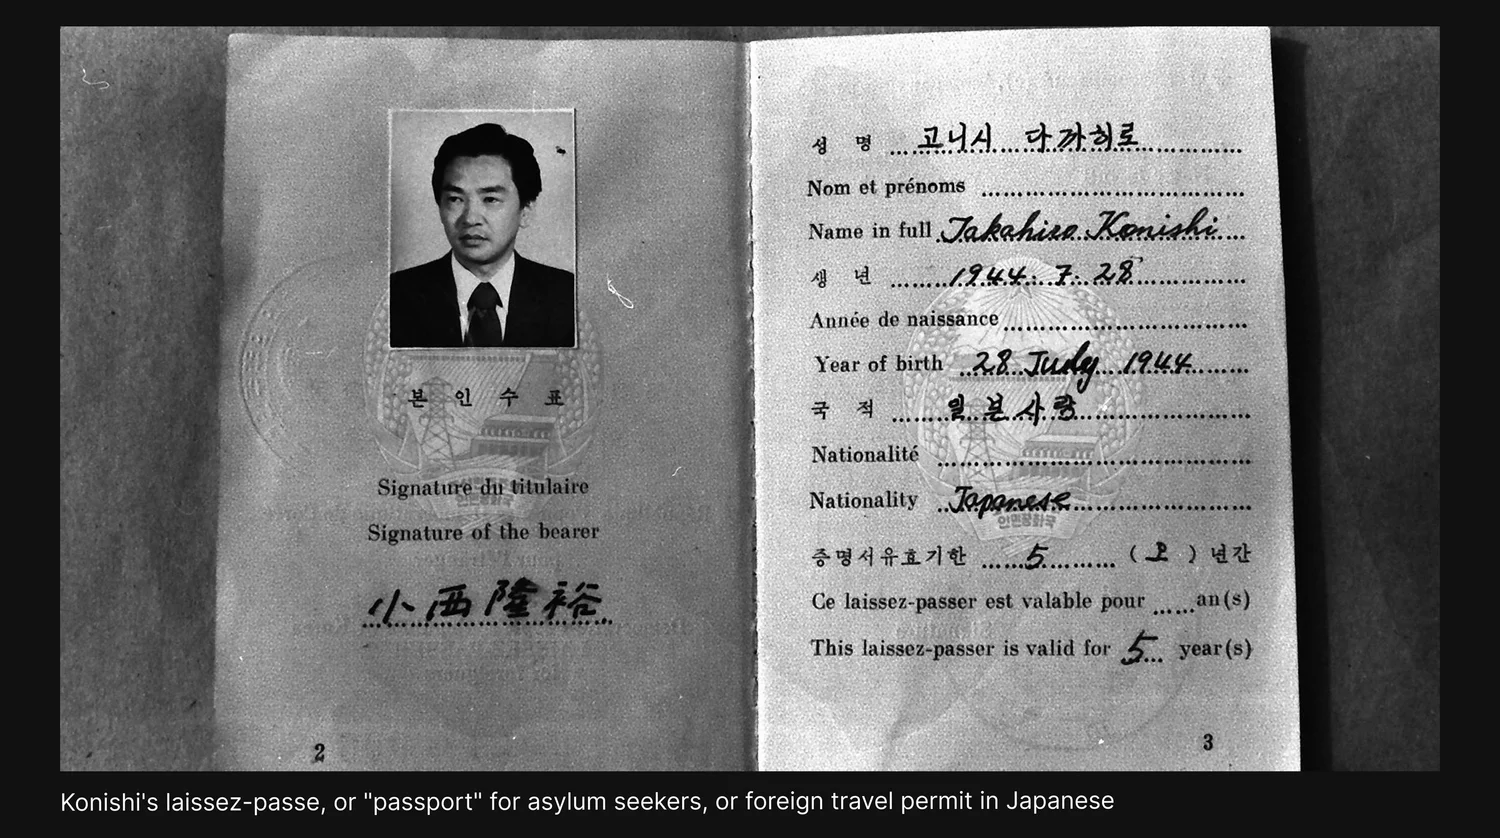 본 인 수 표
Signature du titulaire
Signature of the bearer
小西隆裕
2
성 명 고니시 다까히로
Nom et prénoms
Name in full Takahiro Konishi
생 년 1944. 7. 28
Année de naissance
Year of birth 28 July 1944
국 적 일본사람
Nationalité
Nationality Japanese
인민공화국
증명서유효기한 5 (오)년간
Ce laissez-passer est valable pour an(s)
This laissez-passer is valid for 5 year(s)
3
Konishi's laissez-passe, or "passport" for asylum seekers, or foreign travel permit in Japanese